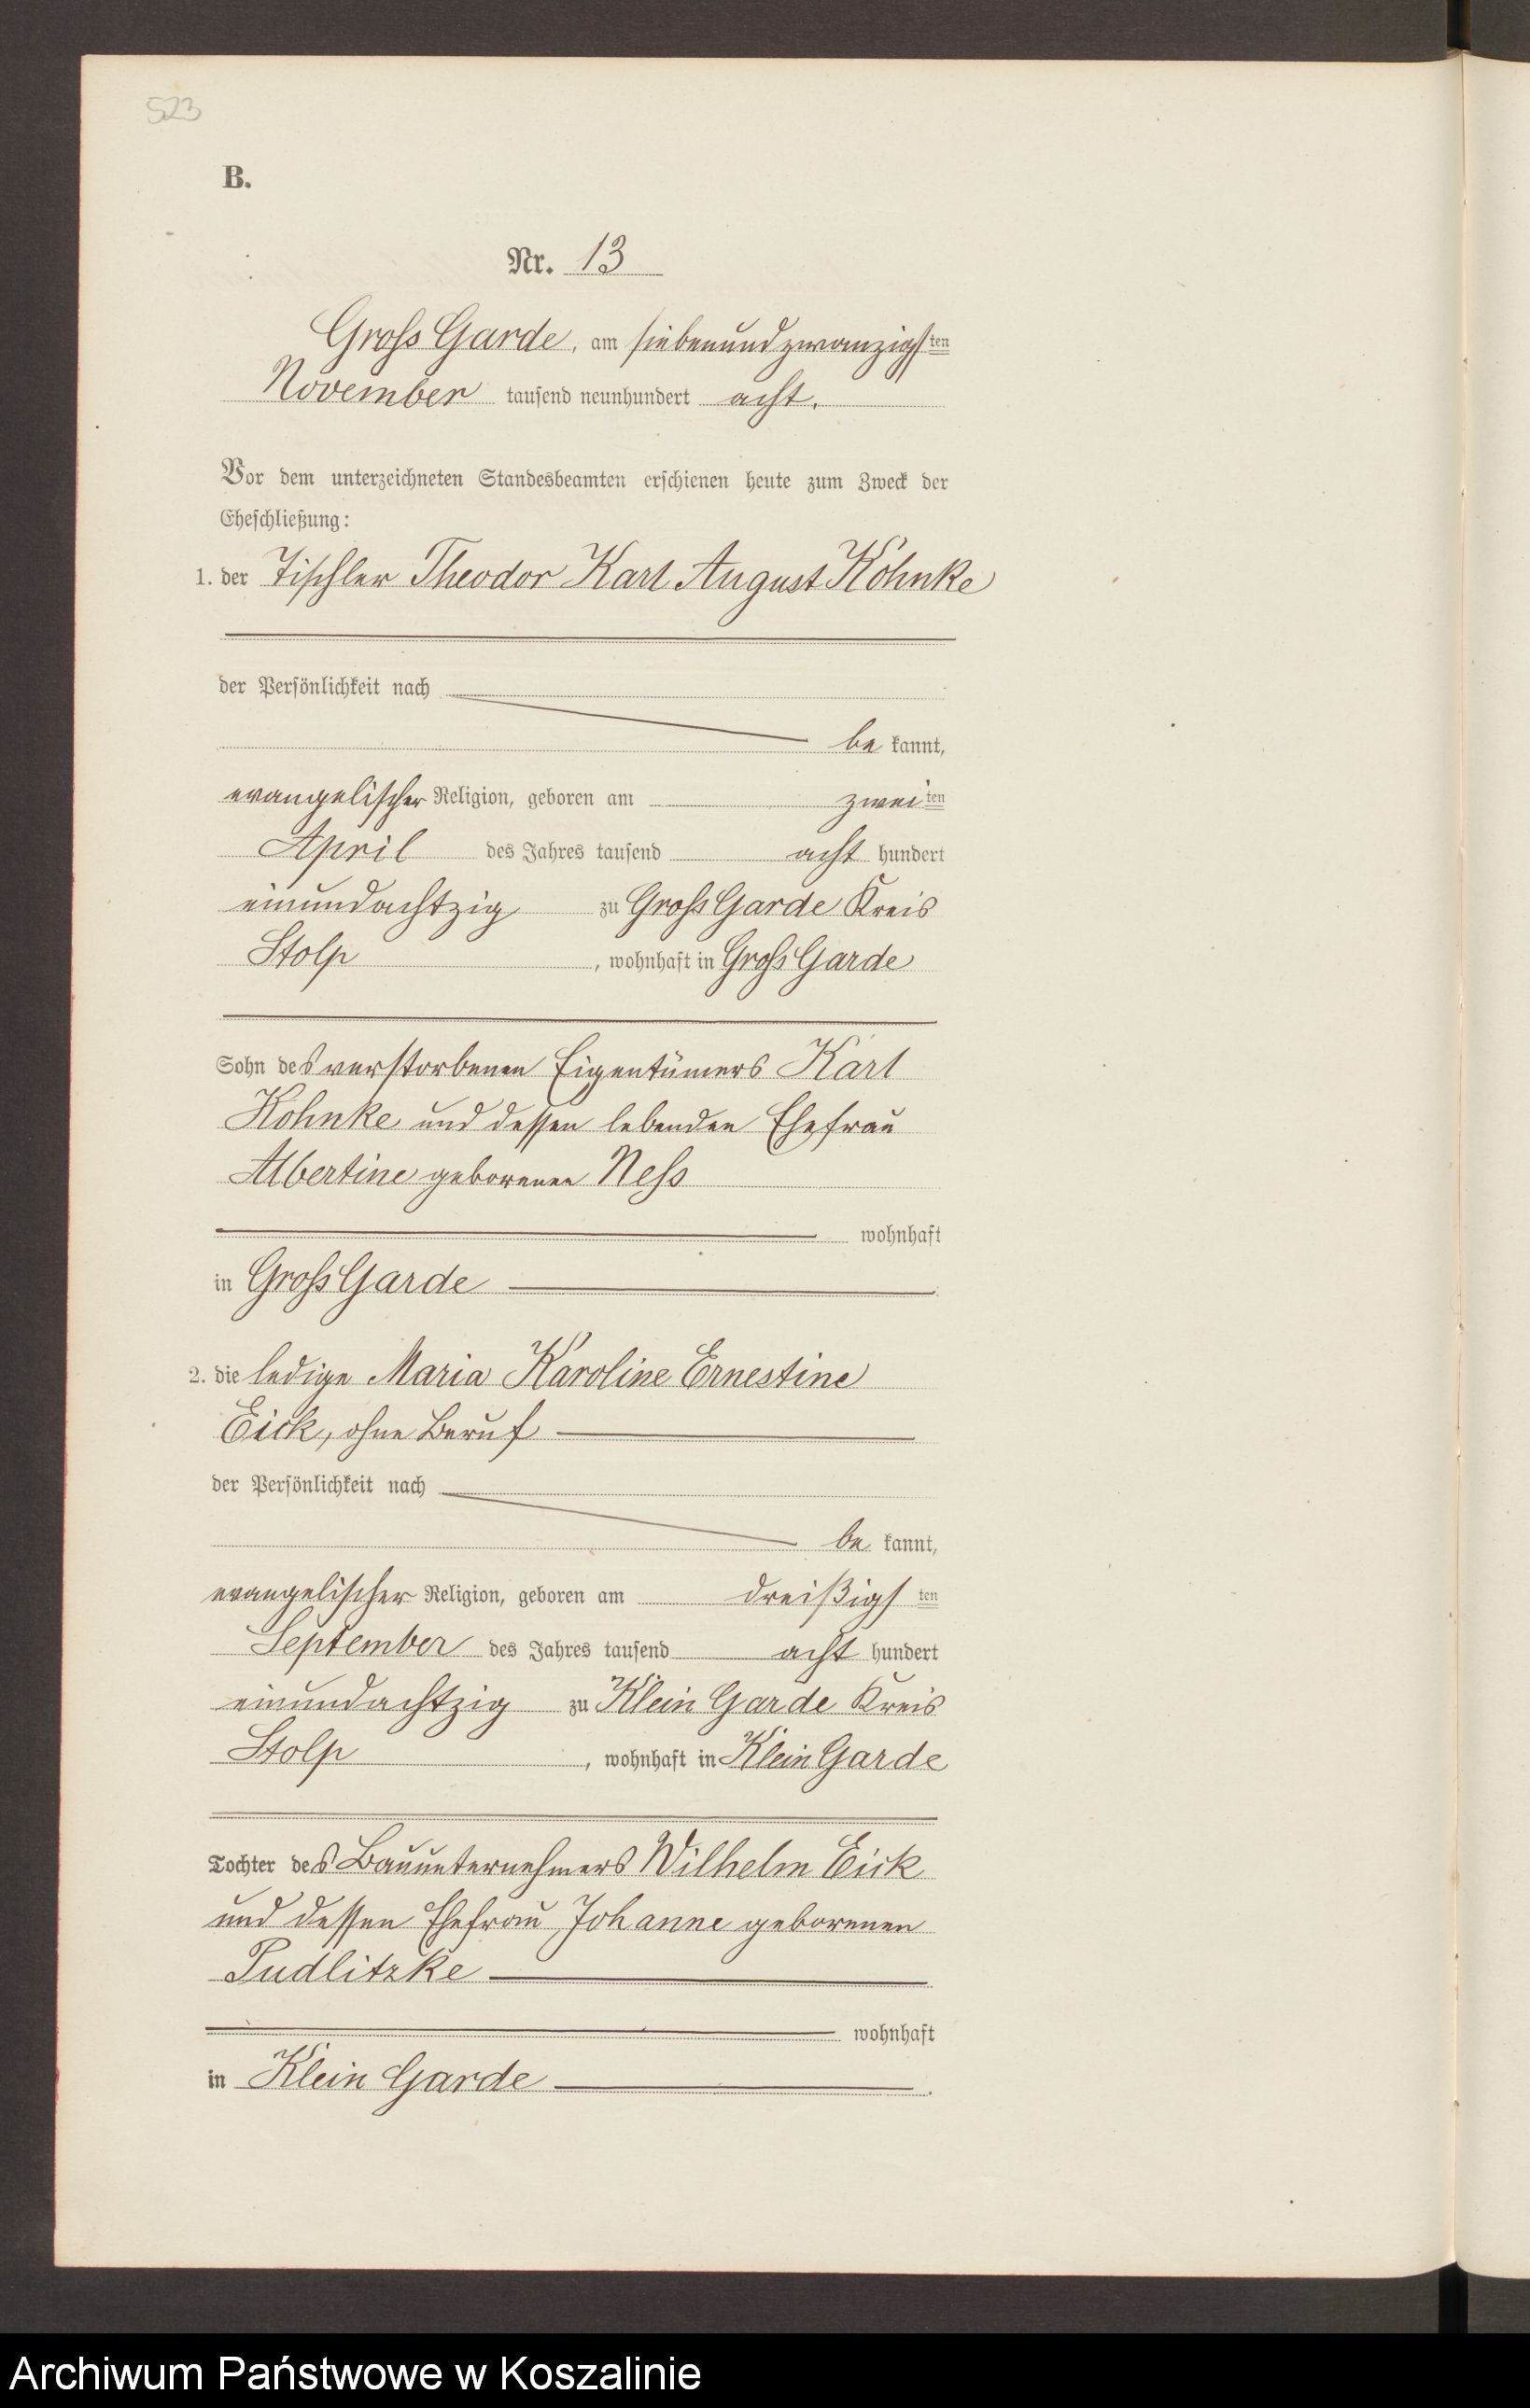 523
B.
Nr. 13
Groß Garde, am siebenundzwanzigsten
November tausend neunhundert acht.
Vor dem unterzeichneten Standesbeamten erschienen heute zum Zweck der
Eheschließung:
1. der Tischler Theodor Karl August Kohnke
der Persönlichkeit nach
be kannt,
evangelischer Religion, geboren am zweiten
April des Jahres tausend acht hundert
einundachtzig zu Groß Garde Kreis
Stolp, wohnhaft in Groß Garde
Sohn des verstorbenen Eigentümers Karl
Kohnke und dessen lebenden Ehefrau
Albertine geborenen Neß
wohnhaft
in Groß Garde
2. die ledige Maria Karoline Ernestine
Eick, ohne Beruf
der Persönlichkeit nach
be kannt,
evangelischer Religion, geboren am dreißigsten
September des Jahres tausend acht hundert
einundachtzig zu Klein Garde Kreis
Stolp, wohnhaft in Klein Garde
Tochter des Bauunternehmers Wilhelm Eick
und dessen Ehefrau Johanne geborenen
Pudlitzke
wohnhaft
in Klein Garde.
Archiwum Państwowe w Koszalinie